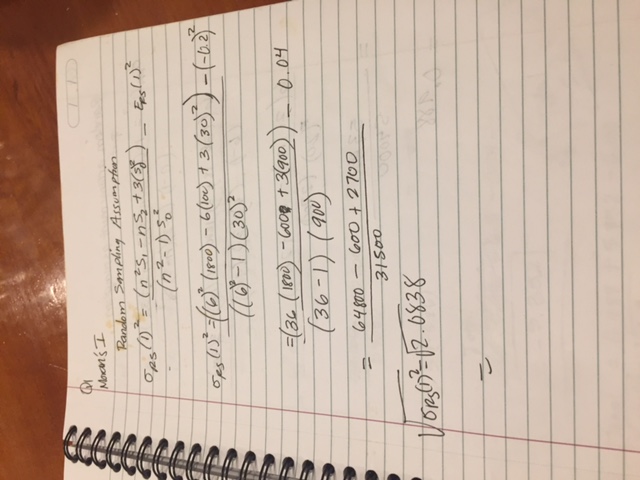 Q1
Moran's I
Random Sampling Assumption
σRS(I)² = (n²S₁ - nS₂ + 3(S₀)²) / (n² - 1) S₀² - ERS(I)²
σRS(I)² = ((6)² (1800) - 6(100) + 3(30)²) / ((6)² - 1) (30)² - (-0.2)²
= (36 (1800) - 600 + 3(900)) / (36 - 1) (900) - 0.04
= 64800 - 600 + 2700 / 31500
√σRS(I)² = √2.0838
=